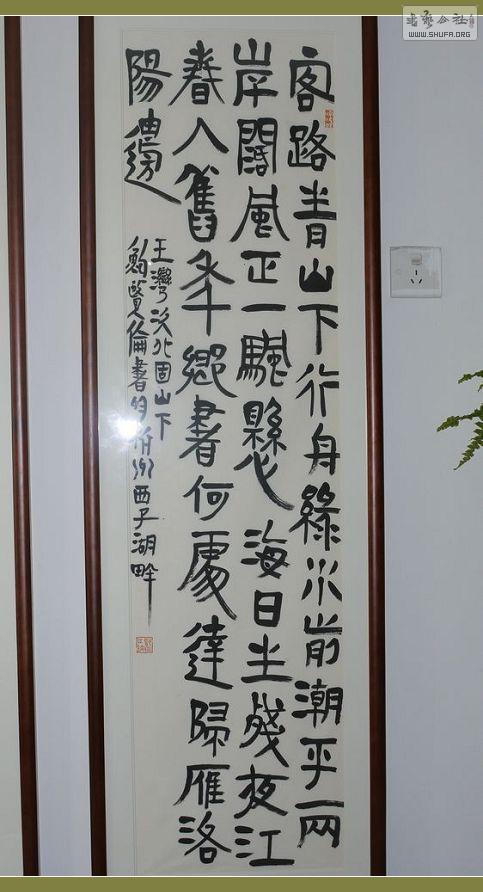 客路青山下行舟綠水前潮平兩
岸闊風正一颿懸海日生殘夜江
春入舊年鄉書何處達歸雁洛
陽邊
王灣次北固山下
鮑賢倫書於杭州西子湖畔
书藝公社
WWW.SHUFA.ORG